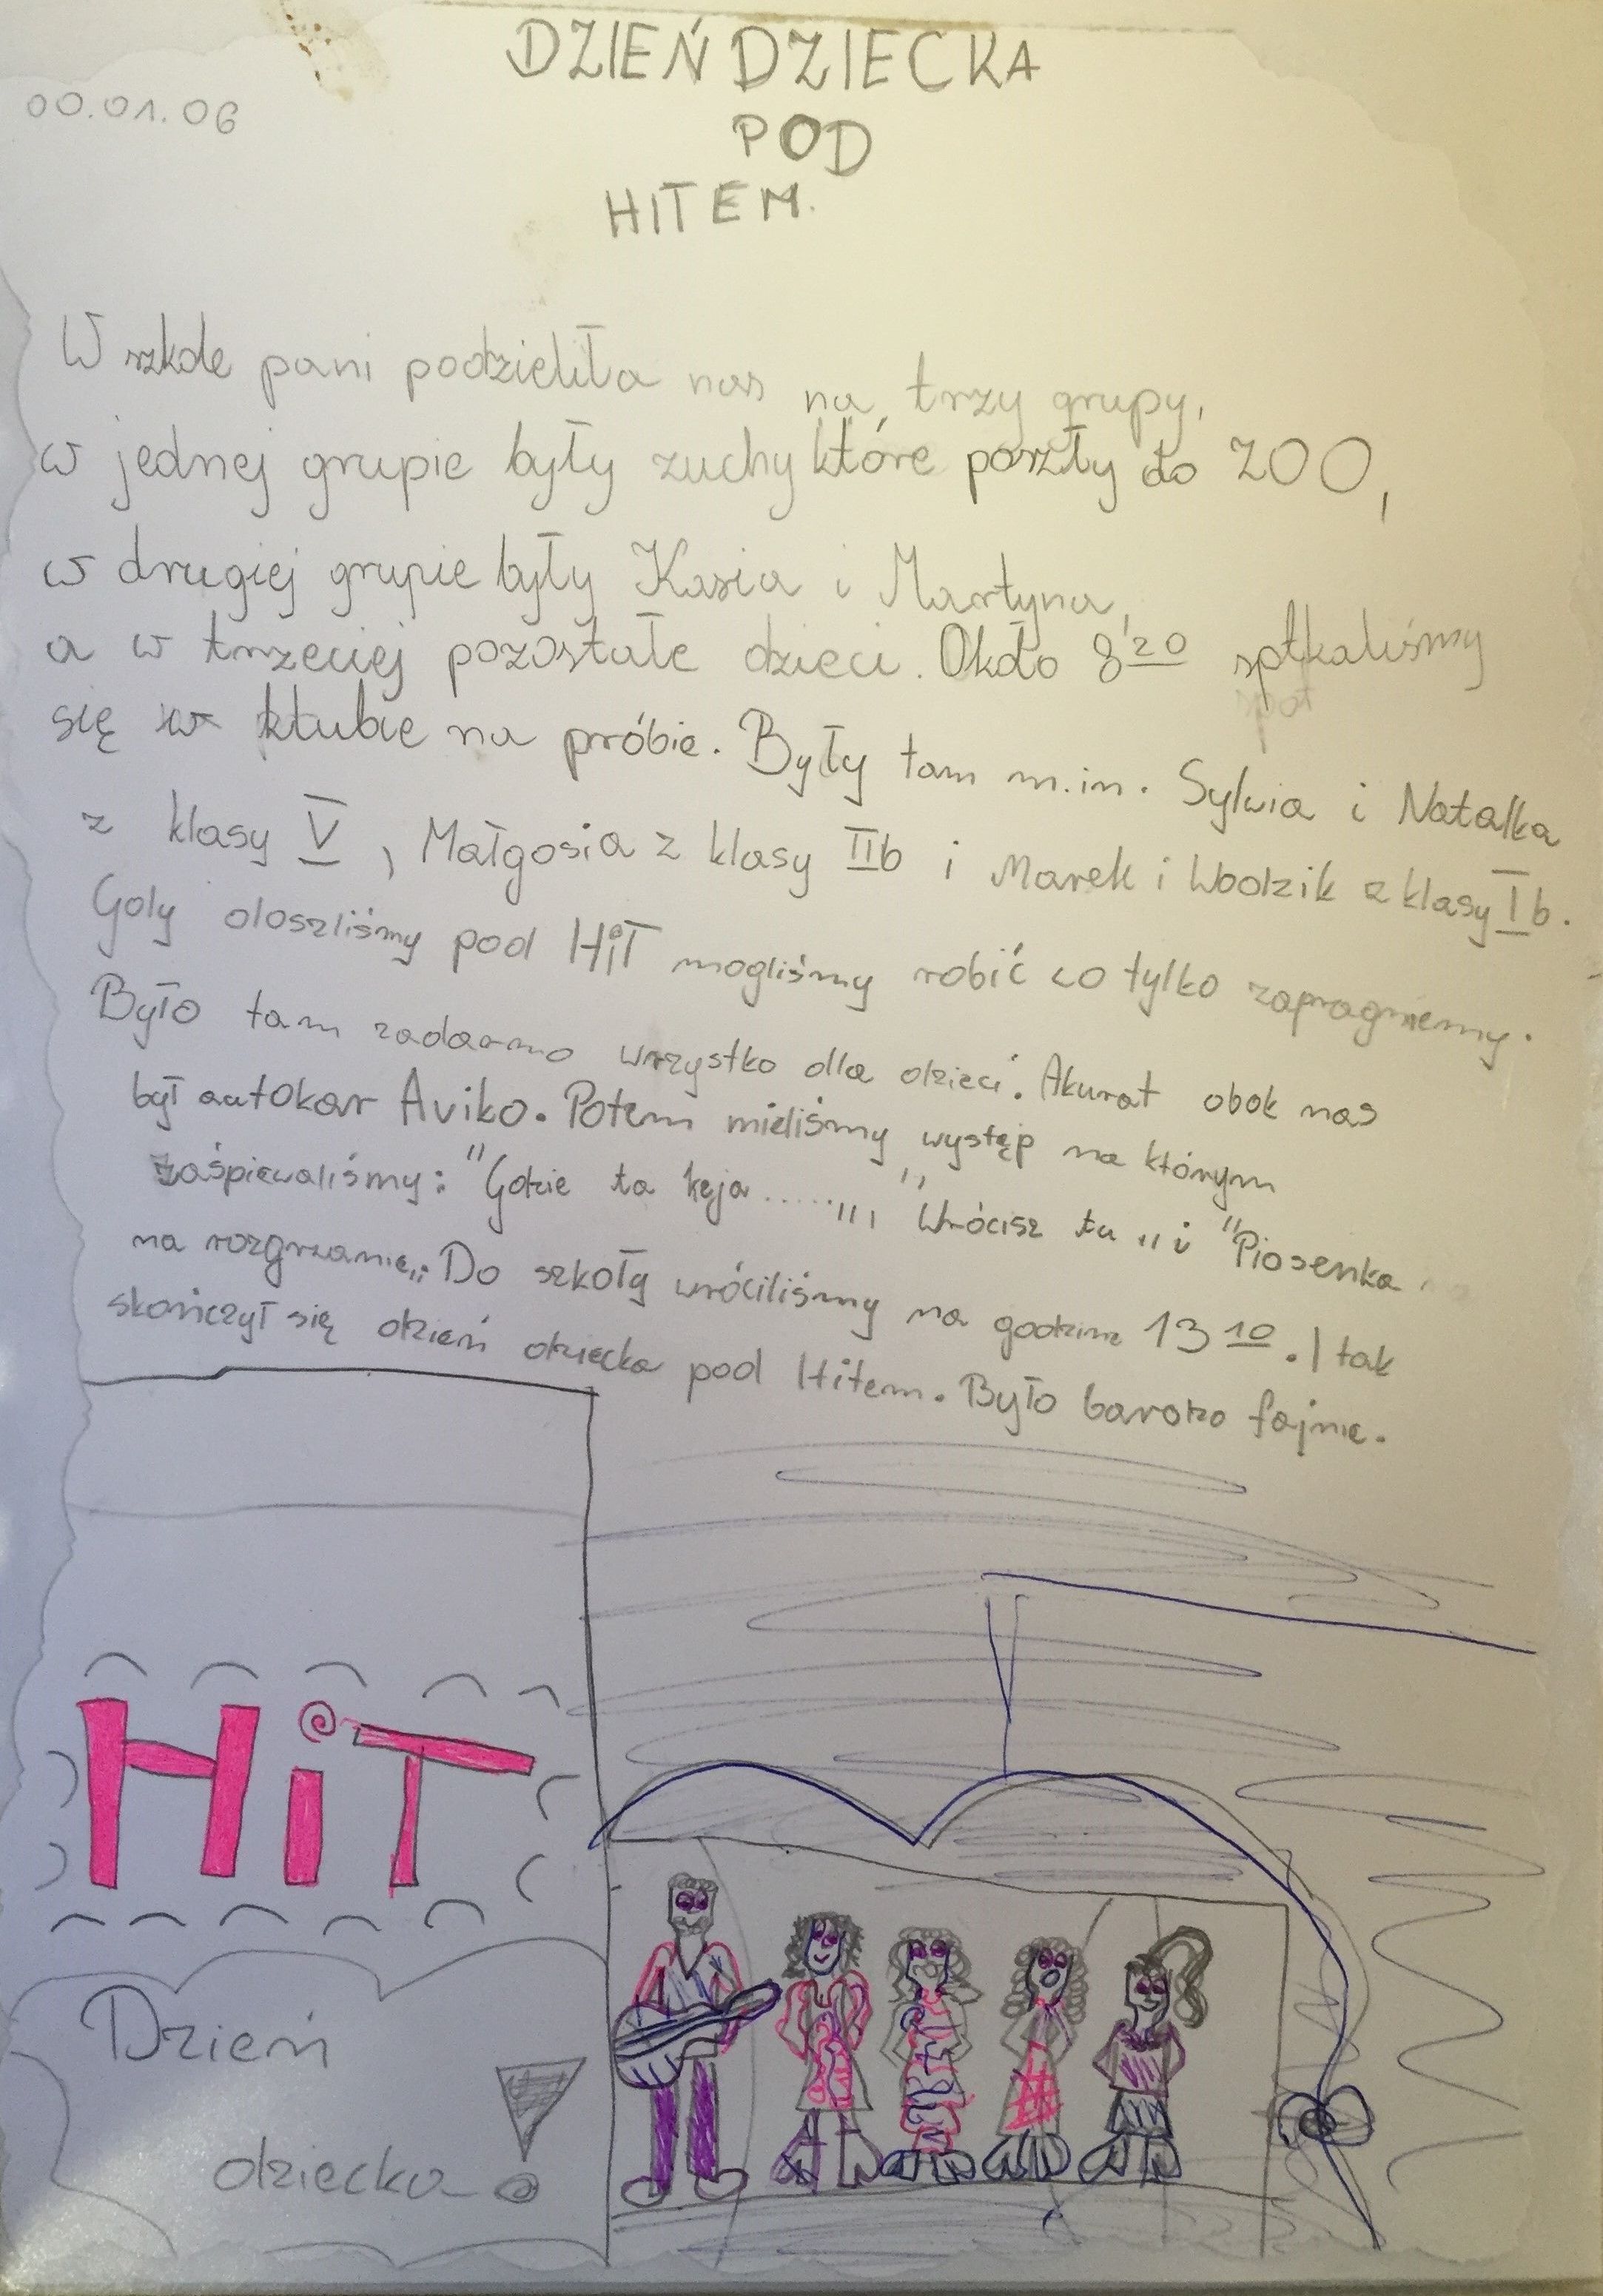 DZIEŃ DZIECKA
00.01.06
POD
HITEM.
W szkole pani podzieliła nas na trzy grupy,
w jednej grupie były zuchy które poszły do ZOO,
w drugiej grupie były Kasia i Martyna,
a w trzeciej pozostałe dzieci. Około 8²⁰ sptkaliśmy
spot
się w klubie na próbie. Były tam m.in. Sylwia i Natalka
z klasy V, Małgosia z klasy IIb i Marek i Wodzik z klasy Ib.
Gdy doszliśmy pod HiT mogliśmy robić co tylko zapragniemy.
Było tam zadarmo wszystko dla dzieci. Akurat obok nas
był autokar Aviko. Potem mieliśmy występ na którym
zaśpiewaliśmy: "Gdzie ta keja......,,, "Wrócisz tu ,, i "Piosenka
na rozgrzanie,,. Do szkoły wróciliśmy na godzine 13¹⁰. I tak
skończył się dzień dziecka pod Hitem. Było bardzo fajnie.
HiT
Dzień
dziecka!